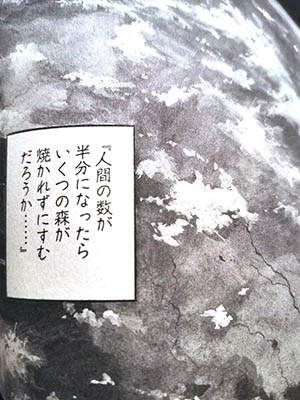 『人間の数が
半分になったら
いくつの森が
焼かれずにすむ
だろうか……』